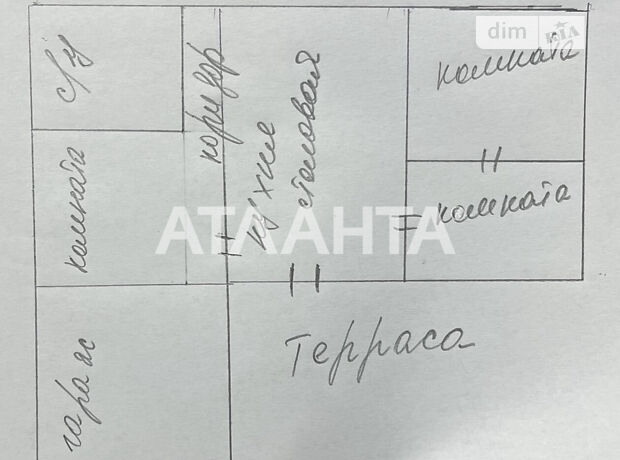 dim RIA
с/у
коридор
кухня
столовая
комната
комната
комната
АТЛАНТА
Терраса
гараж